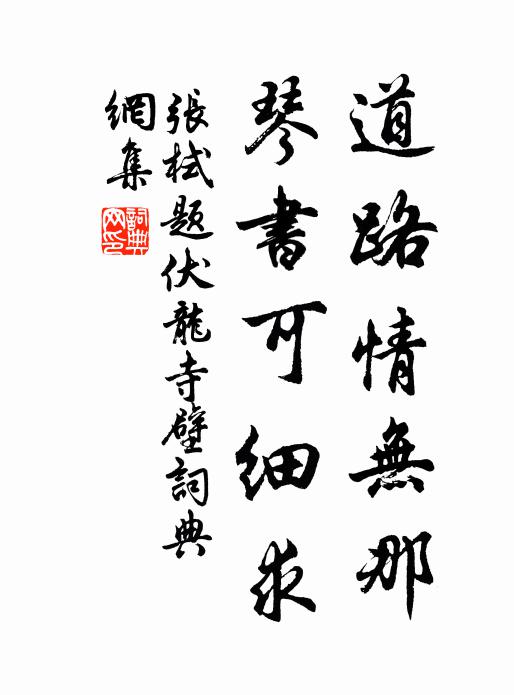 道路情無那
琴書可細求
張栻題伏龍寺壁詞典
網集
詞典
网印